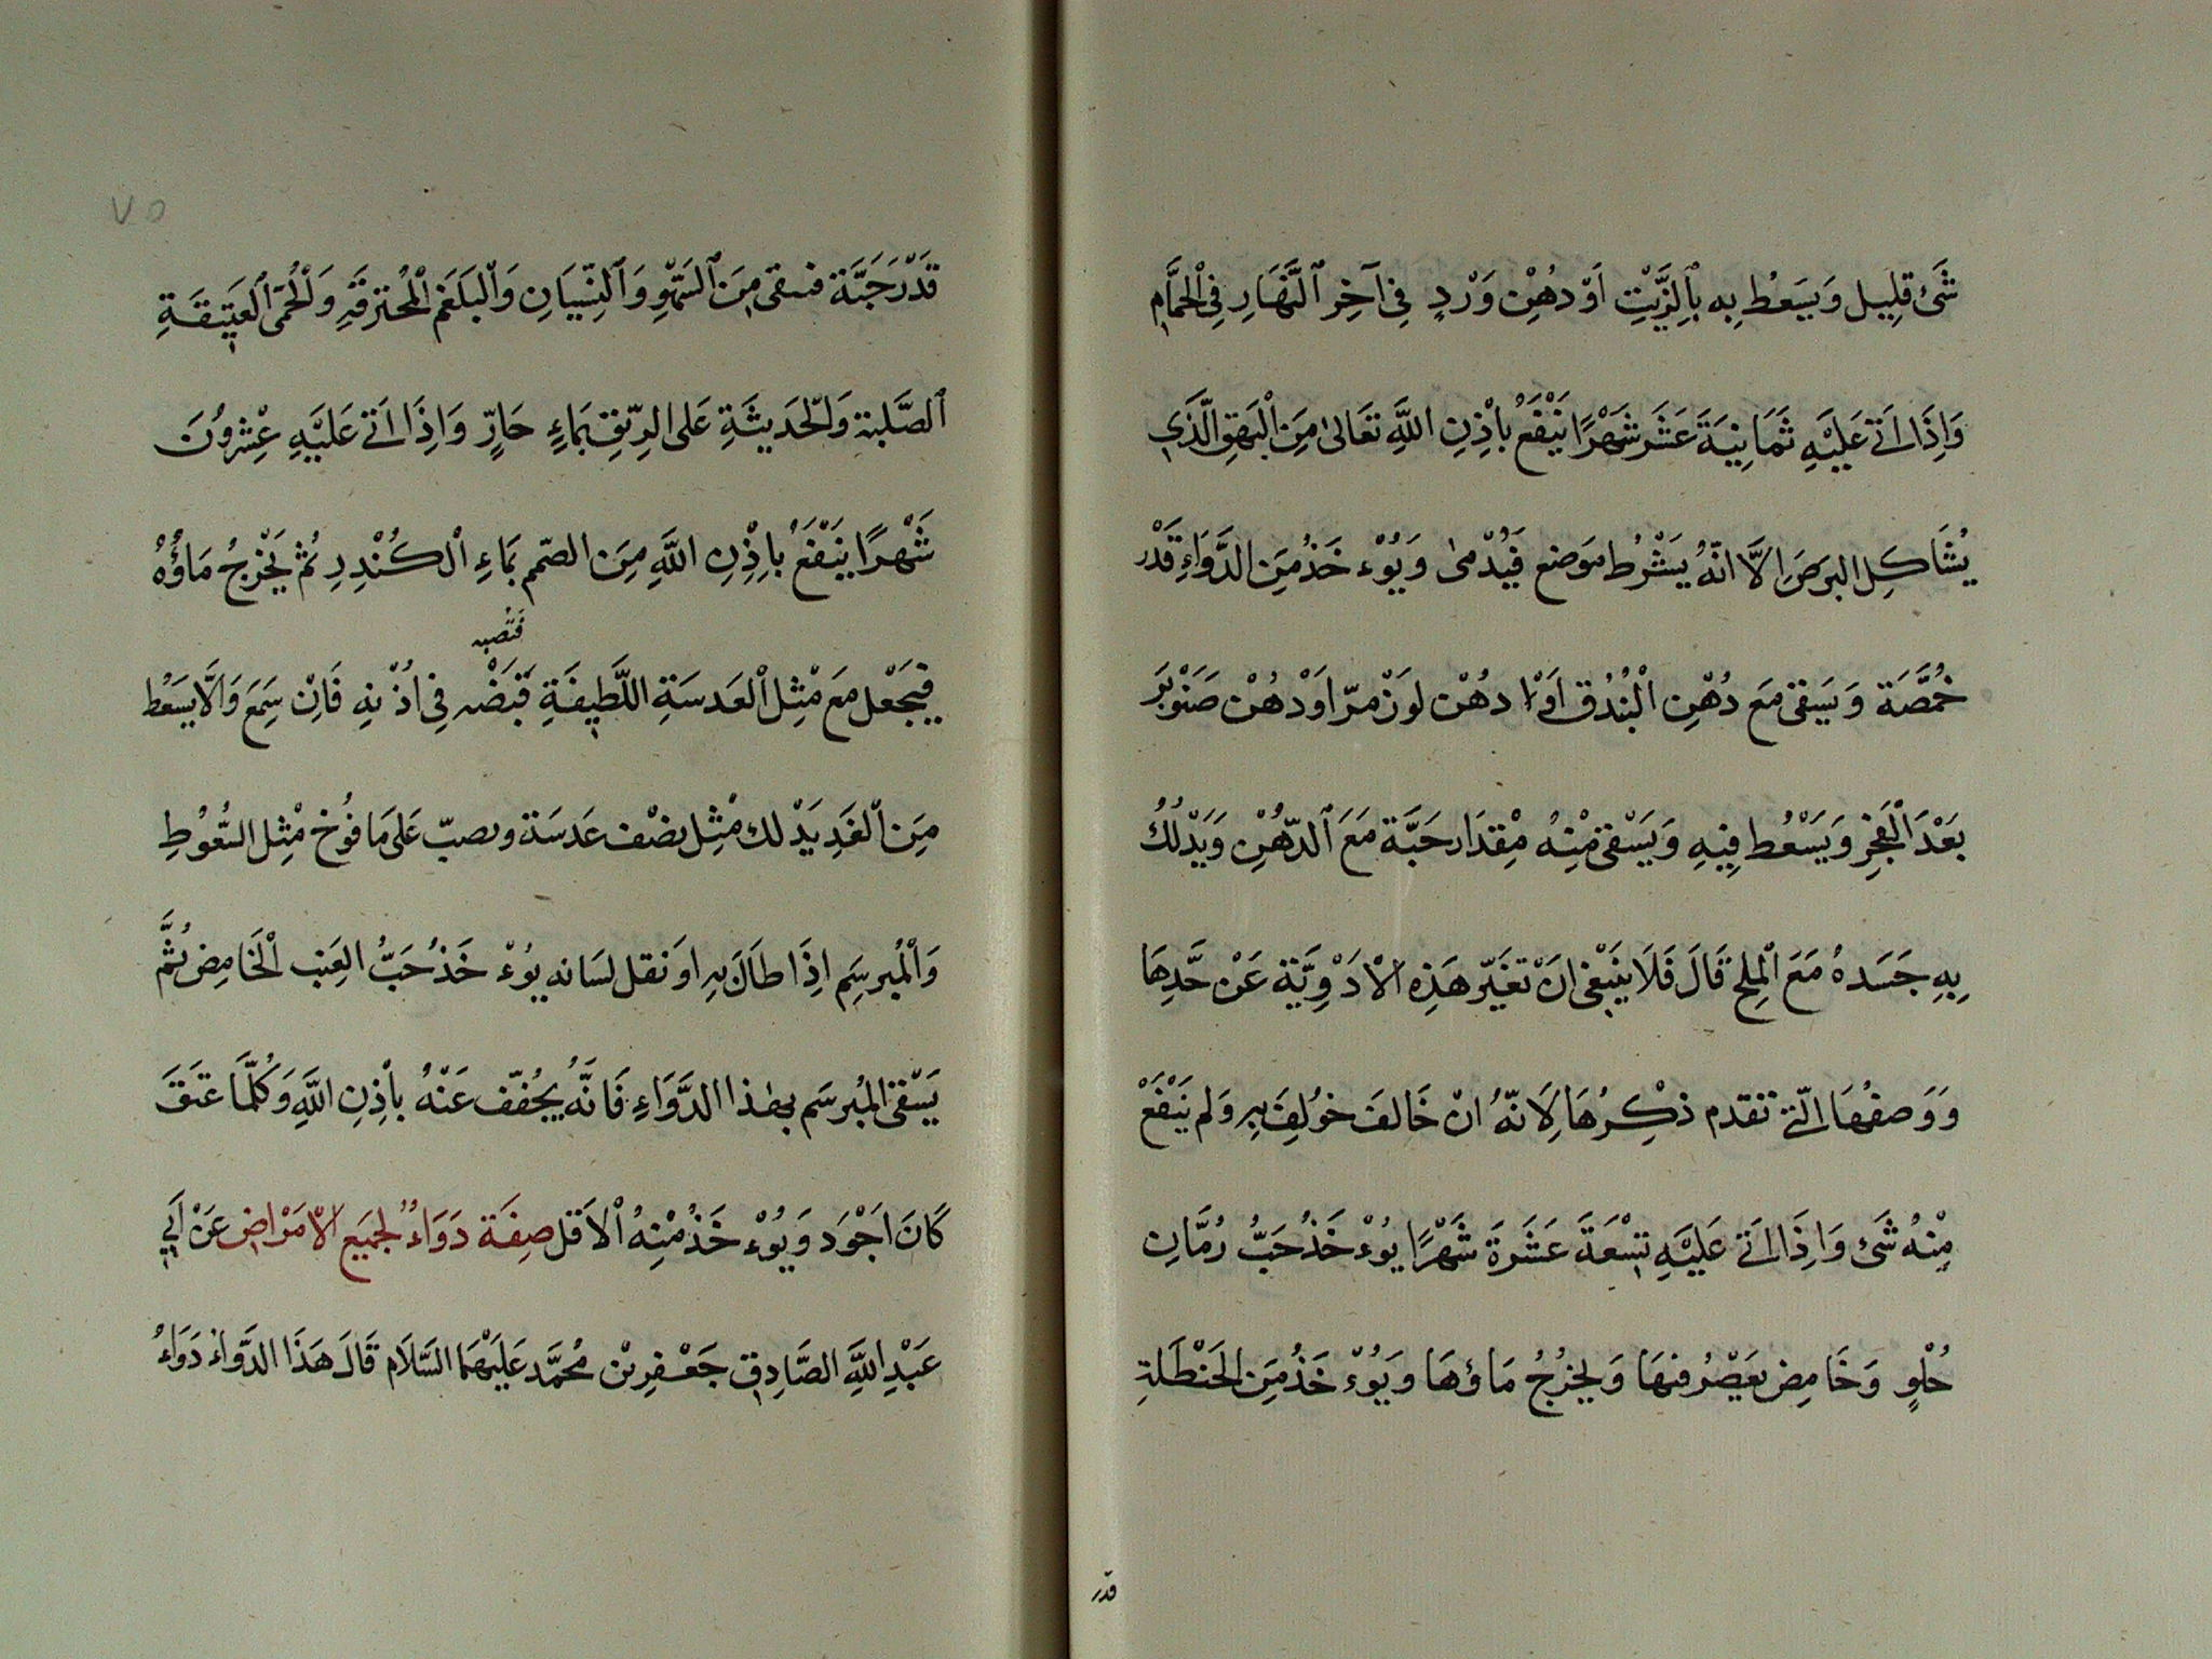 شَئ قلِيل وَيَسَعْط بِه بِالزَّيْتِ اَوْ دُهْنِ وَرْدٍ فِي آخِر النَّهَارِ فِي الْحَمَّامِ
وَاِذَا اَتَى عَلَيْهِ ثَمَانِيَةَ عَشَر شَهْرًا يَنْفَعُ بِاْذِنِ اللَّهِ تَعَالىٰ مِنَ الْبَهَقِ الَّذِي
يُشَاكِل البرَصَ اِلَّا انَّهُ يَشْرُط مَوضع فَيُدْمىٰ وَيُوْء خَذُ مِنَ الدَّوَاءِ قَدْر
حُمَّصَة وَيَسَقى مَعَ دُهْنِ الْبُنْدُق اَوْ دهُنْ لوَزْ مرّ اوَ دهُنْ صَنَوْبَر
بَعْدَ الْفَجْرِ وَيَسْعُط فِيهِ وَيَسْقىٰ مْنِهُ مْقِدَار حَبَّة مَعَ الدّهُنْ وَيَدْلُكُ
بِهِ جَسَدهُ مَعَ الْمِلح قَالَ فَلَا يَنْبَغى انَ تَغَيّر هَذِه الْادَوِيَّة عَنْ حَّدِهَا
وَوَصفهَا الّتى تقدم ذكْرُهَا لِانّهُ انْ خَالفَ خوُلِفَ بِه وَلم يَنْفَعْ
مْنِهُ شَئ وَاِذَا اَتَى عَلَيْهِ تِسْعَةَ عَشَرةَ شَهْرًا يوُء خَذُ حَبُّ رُمَّانِ
حُلْوٍ وَحَامِض يعَصْرُ منهَا وَيخرُجُ مَاؤهَا وَيُوْء خذُ مِنَ الحَنْظَلةِ
قدر
٧٥
قَدْرَ حَبَّة فسقى مِنَ السَّهْوِ وَالنِّسْيَانِ وَالْبَلغَم الْمُحْترَقَةِ وَالْحُمّى العَتِيقَةِ
الصَّلبة وَالْحَدِيثَةِ عَلى الرِّيقِ بمَاءٍ حَارٍّ وَاِذَا اَتى عَلَيْهِ عِشْروُنَ
شَهْرًا يَنْفَعُ باِذِنِ اللَّهِ مِنَ الصّمم بمَاءِ الْكُنْدِرِ ثمُّ يَخْرِجُ مَاؤُهُ
فتصبه
فيَجْعَل مَعَ مْثِل الْعَدسَةِ اللَّطِيفَةِ قبَضْه فِى اُذْنِهِ فَاِنْ سَمِعَ وَاِلَّا يَسَعُط
مِنَ الْغَدِ يَدْلك مْثِل نصْف عَدسَة وبصبّ عَلى مَا فوُخ مْثِل السّعُوْطِ
وَالْمُبرسِم اِذَا طَالَ بِه اوَ ثقل لسَانه يوُءْ خَذُ حَبُّ العِنب الْحَامِض ثمَّ
يَسْقىٰ المُبرسَم بهٰذا الدَّوَاءِ فَانّهُ يُجُفّف عَنْهُ بِاْذِنِ اللَّهِ وَكُلَّمَا عتَقَ
كَانَ اجَوْدَ وَيُوْء خَذُ مْنِهُ الْاَقل صِفَة دَوَاءٌ لجمَيِع الْاَمْرَاضِ عَنْ اَبِى
عَبْدِ اللَّهِ الصَّادِقِ جَعْفِر بْن مُحمَّد عَلَيْهِمَا السَّلَام قَالَ هَذَا الدَّوَاءُ دَوَاءُ